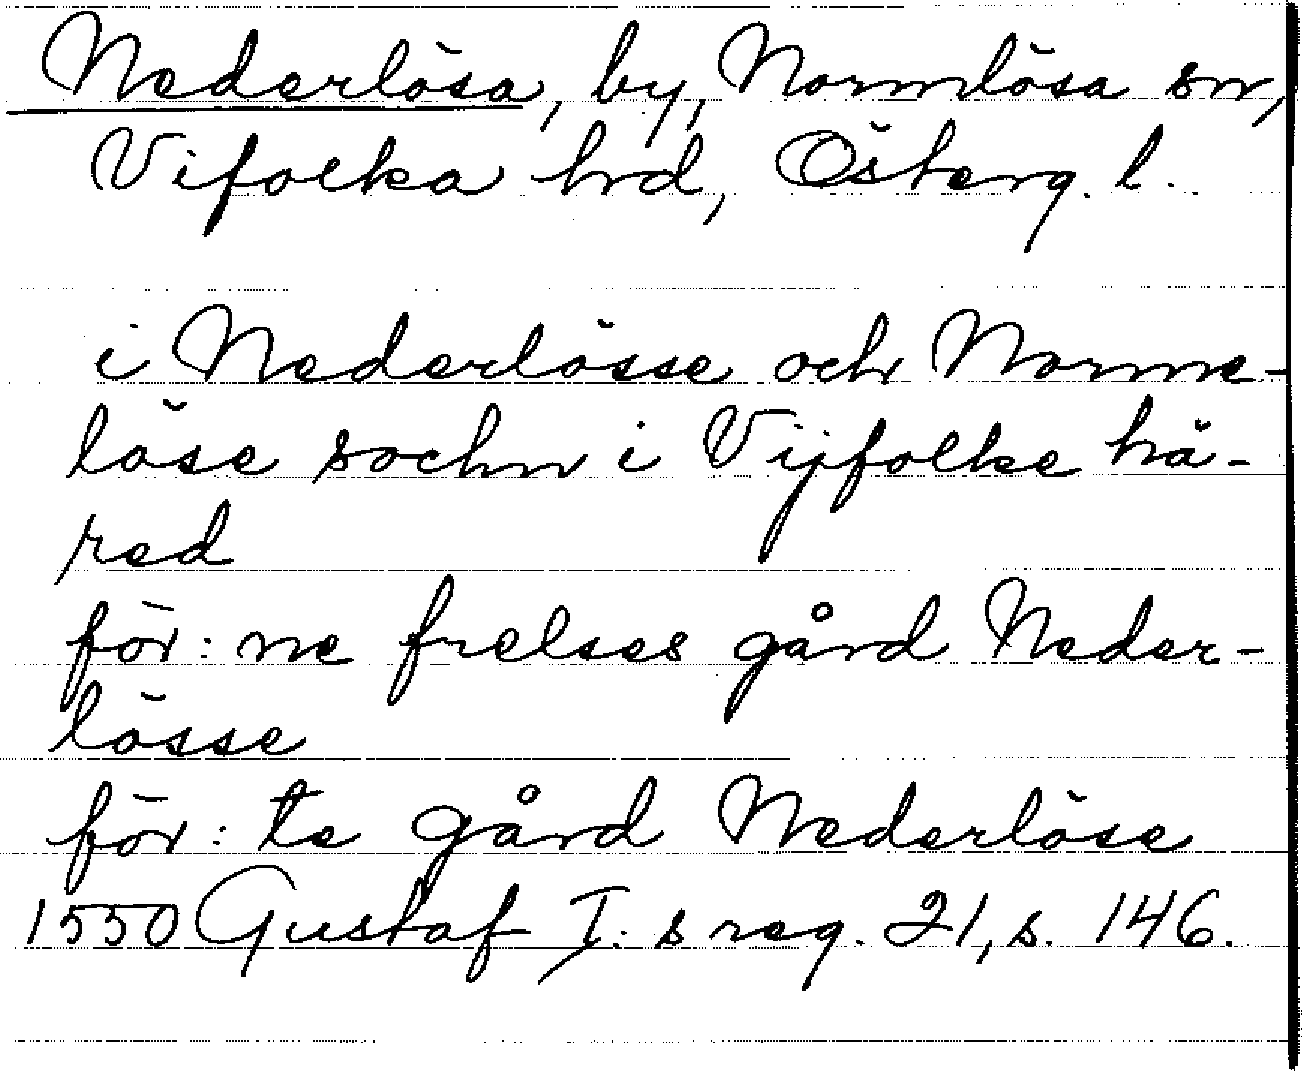 Nederlösa, by, Normlösa sn,
Vifolka hrd, Österg. l.
i Nederlösse och Norme-
löse sochn i Vijfolke hä-
red
för: ne frelses gård Neder-
lösse
för: te gård Nederlöse
1550 Gustaf I: s reg. 21, s. 146.